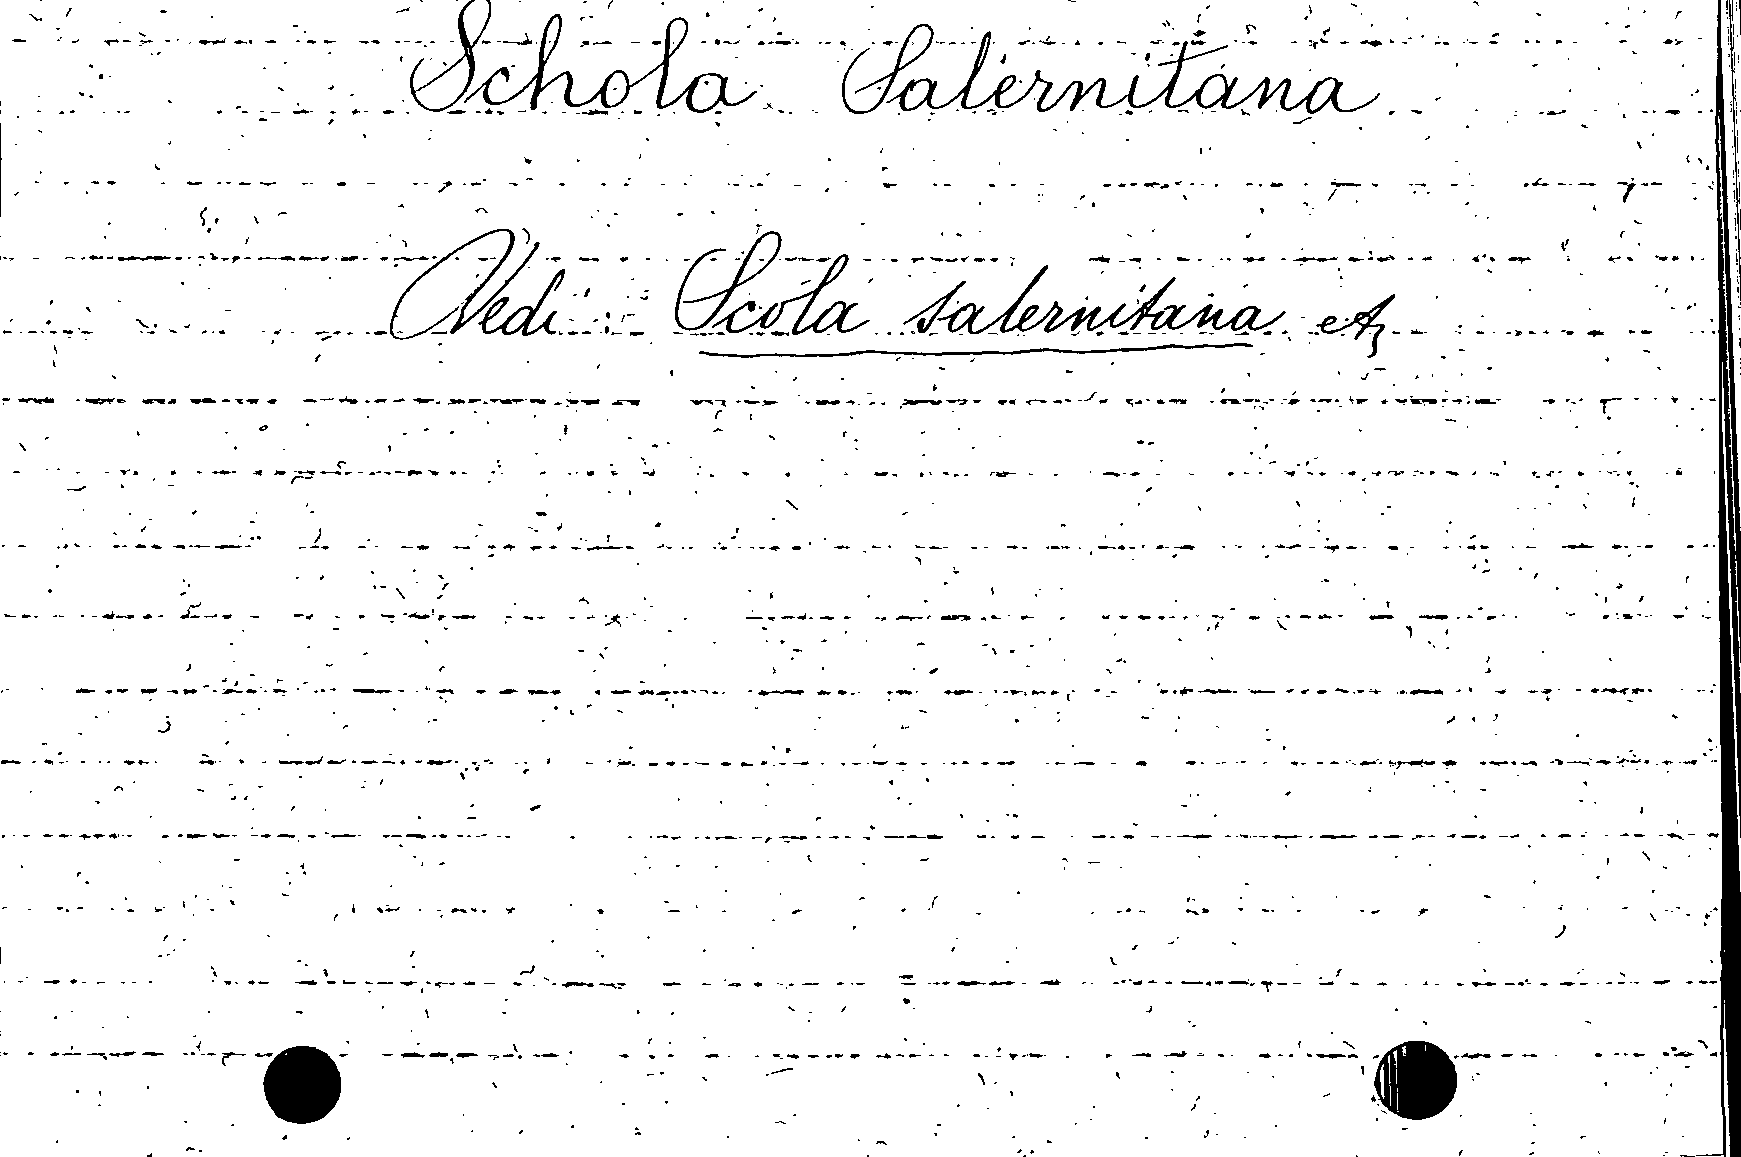 Schola Salernitana
Vedi: Scola salernitana